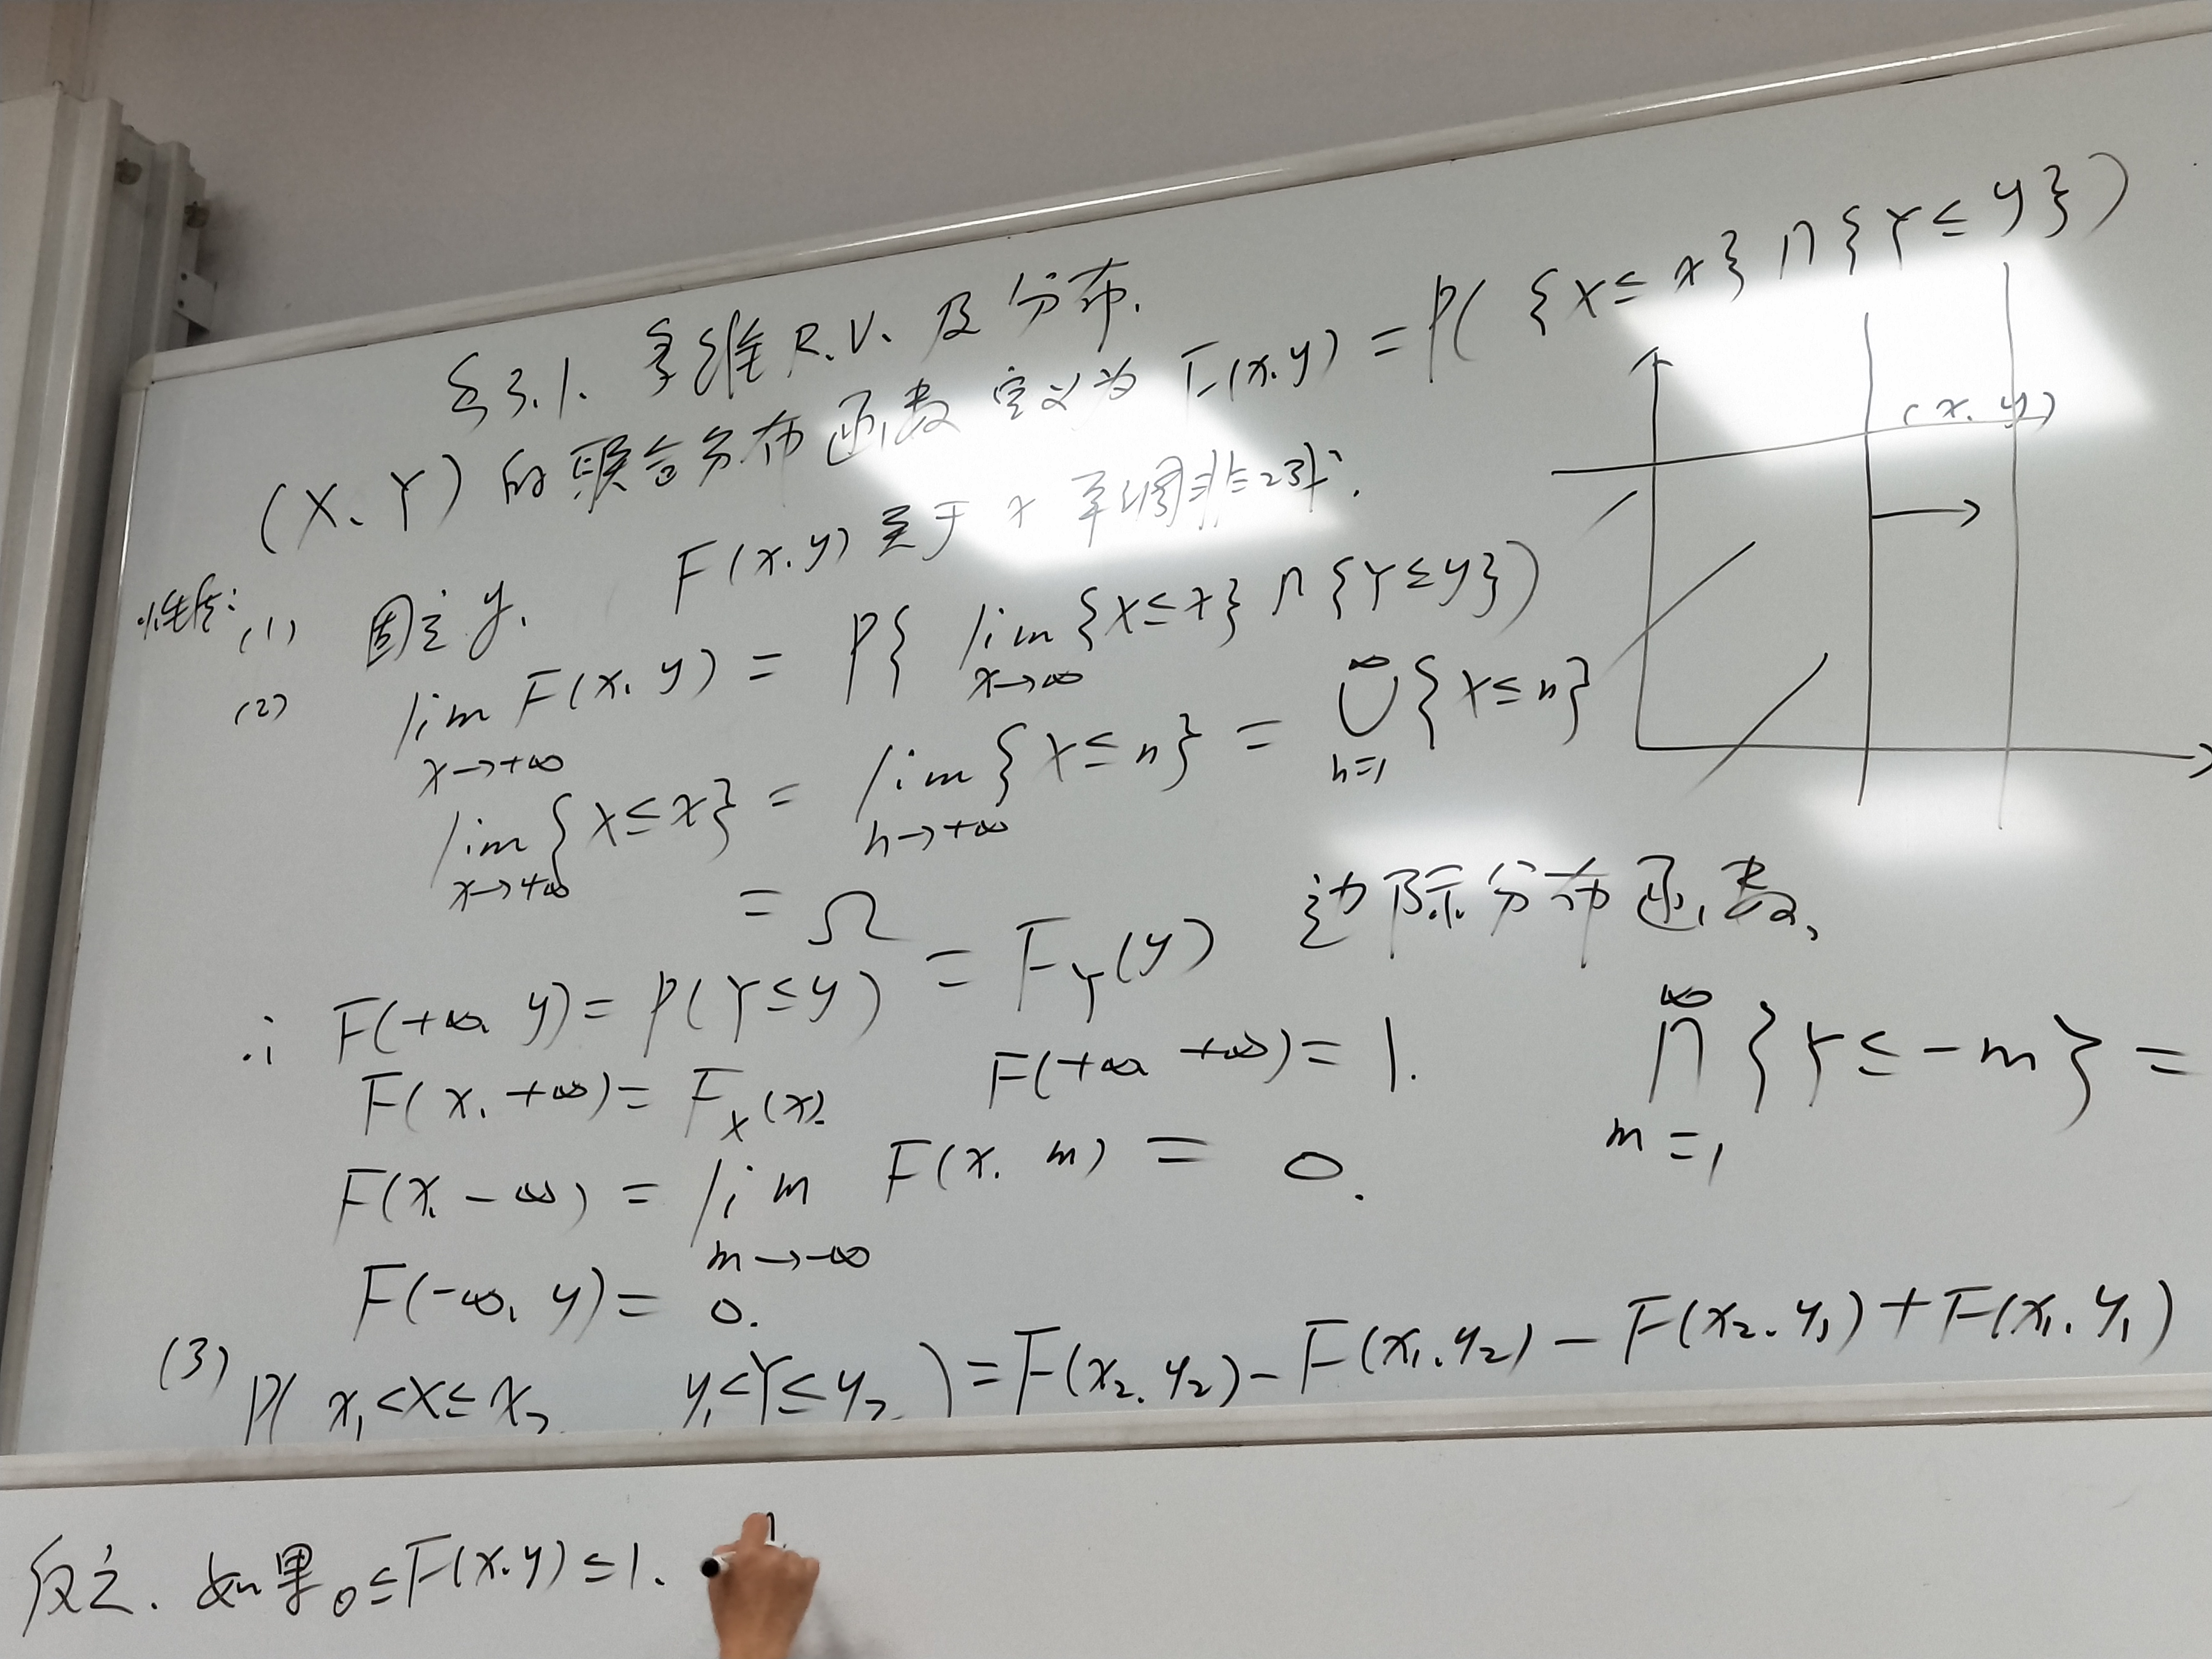 §3.1. 多维 R.V. 及分布.
(X、Y) 的联合分布函数定义为 F(x.y) = P( {X≤x} ∩ {Y≤y} )
(x.y)
性质: (1) 固定y. F(x.y) 关于 x 单调非减.
(2) lim_{x→+∞} F(x.y) = P{ lim_{x→∞} {X≤x} ∩ {Y≤y})
lim_{x→+∞} {X≤x} = lim_{n→+∞} {X≤n} = ⋃_{n=1}^{∞} {X≤n}
= Ω
∴ F(+∞, y) = P(Y≤y) = F_Y(y) 边际分布函数,
F(x, +∞) = F_X(x). F(+∞, +∞) = 1.
⋂_{m=1}^{∞} {Y≤-m} =
F(x, -∞) = lim_{m→-∞} F(x. m) = 0.
F(-∞, y) = 0.
(3) P( x₁<X≤x₂ y₁<Y≤y₂ ) = F(x₂.y₂) - F(x₁.y₂) - F(x₂.y₁) + F(x₁.y₁)
反之. 如果 0≤F(x.y)≤1.